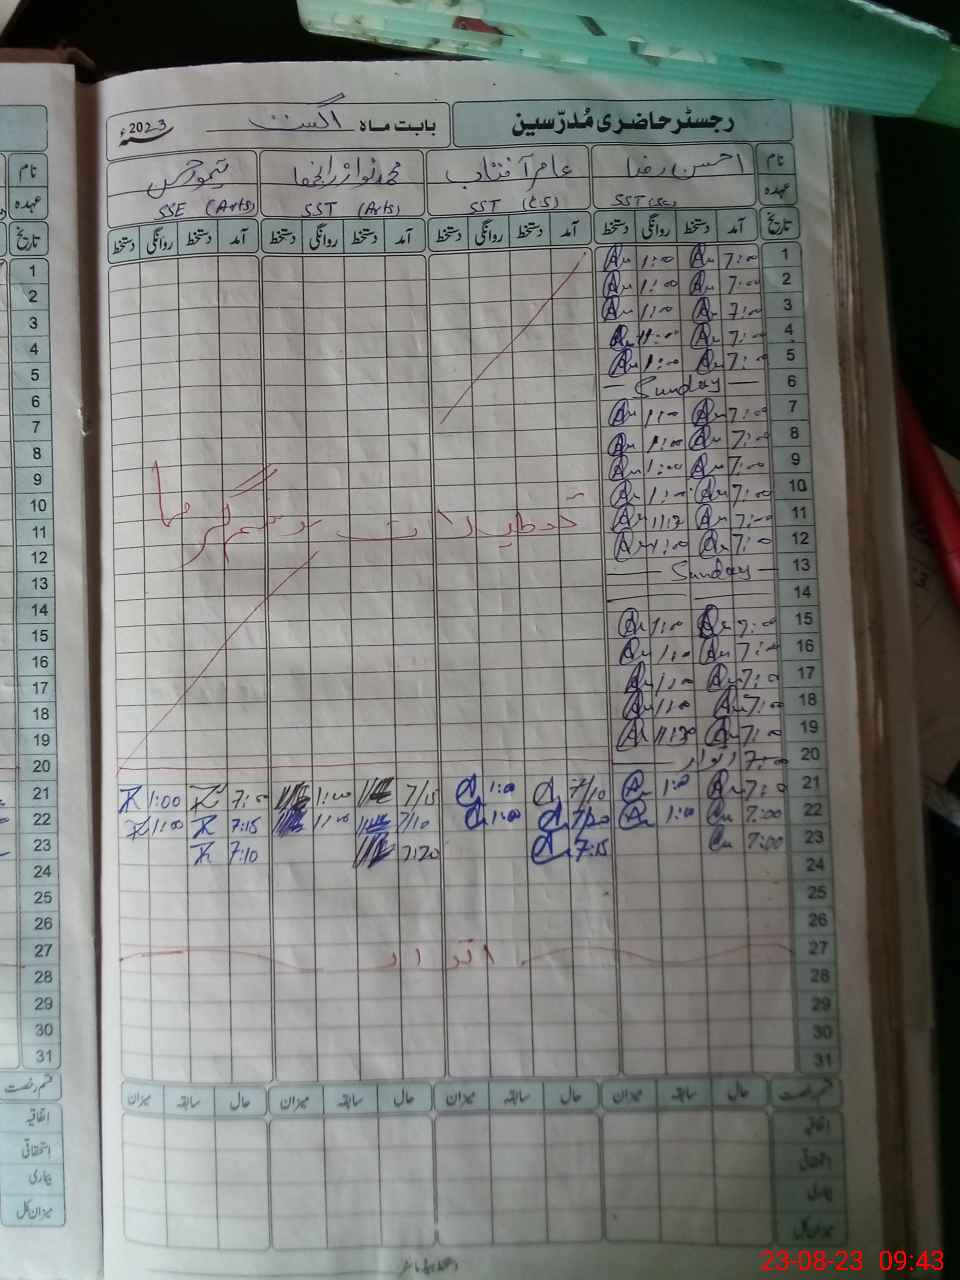 رجسٹر حاضری مُدرّسین بابت ماہ اگست 2023ء
نام احسن رضا عامر آفتاب محمد نواز تیمور حسن نام
عہدہ SST (Sc) SST (CS) SST (Arts) SSE (Arts) عہدہ
تاریخ آمد دستخط روانگی دستخط آمد دستخط روانگی دستخط آمد دستخط روانگی دستخط آمد دستخط روانگی دستخط تاریخ
1 7:00 1:00 1
2 7:00 1:00 2
3 7:00 1:00 3
4 7:00 4
5 7:00 1:00 5
6 Sunday 6
7 7:00 1:00 7
8 7:00 1:00 8
9 7:00 1:00 9
10 7:00 1:00 10
11 7:00 تعطیلات موسم گرما 11
12 7:00 1:00 12
13 Sunday 13
14 14
15 7:00 1:00 15
16 7:00 1:00 16
17 7:00 1:00 17
18 7:00 1:00 18
19 7:00 11:30 19
20 اتوار 20
21 7:00 1:00 7/10 1:00 7/15 1:00 7:00 1:00 21
22 7:00 1:00 7/20 1:00 7/10 1:00 7:15 1:00 22
23 7:00 7:15 7:20 7:10 23
24 24
25 25
26 26
27 اتوار 27
28 28
29 29
30 30
31 31
قسم رخصت حال سابقہ میزان حال سابقہ میزان حال سابقہ میزان حال سابقہ میزان قسم رخصت
اتفاقیہ اتفاقیہ
استحقاقی استحقاقی
بیماری بیماری
میزان کل میزان کل
23-08-23 09:43